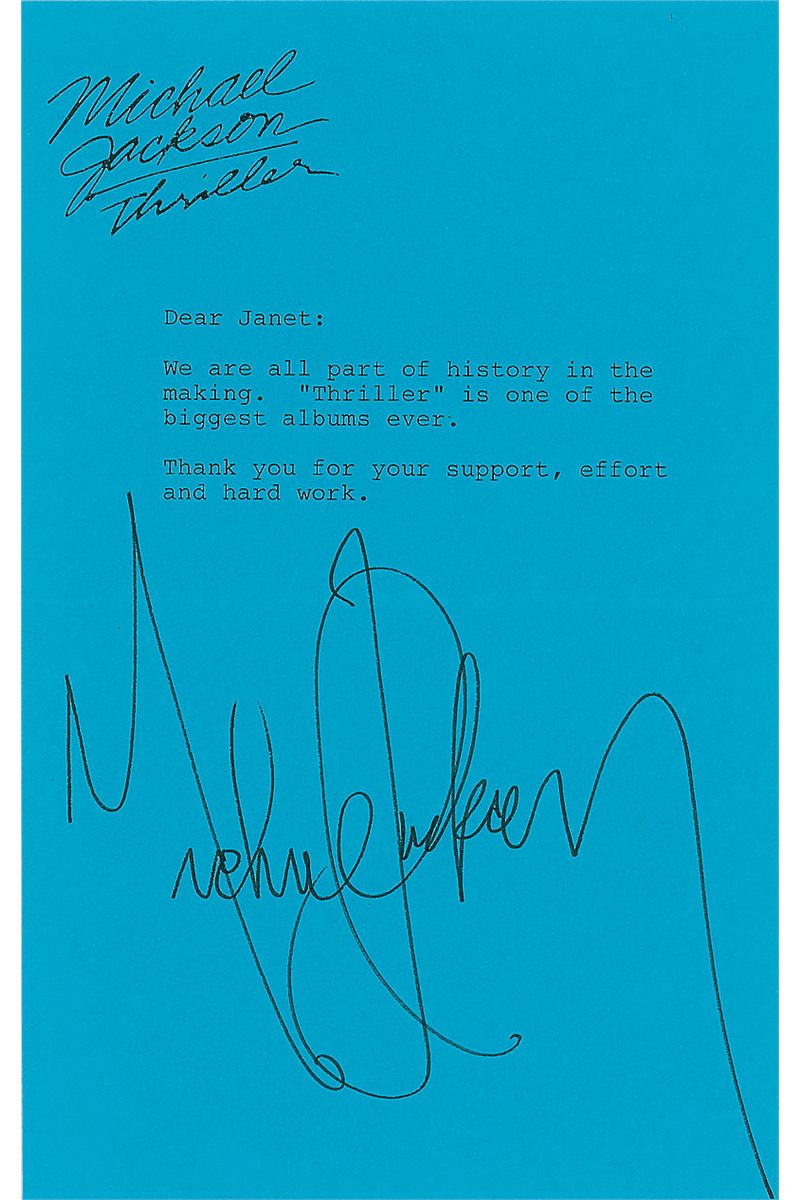 Michael
Jackson
Thriller
Dear Janet:
We are all part of history in the
making.  "Thriller" is one of the
biggest albums ever.
Thank you for your support, effort
and hard work.
Michael Jackson